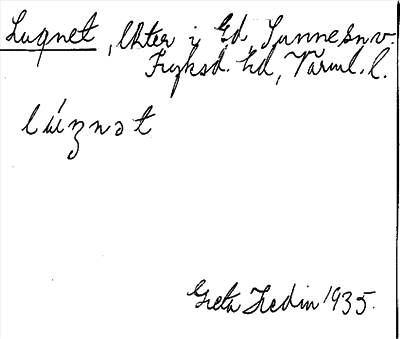 Lugnet, lster i Ed, Sunne sn.v.
Fryksd. hd, Värml. l.
lúꜧnət
Greta Hedin 1935.